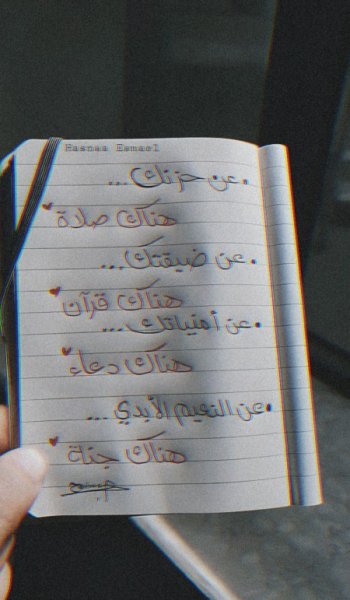 Hasnaa Esmael
• عن حزنك...
هناك صلاة
• عن ضيقتك...
هناك قرآن
• عن أمنياتك...
هناك دعاء
• عن النعيم الأبدي...
هناك جنة